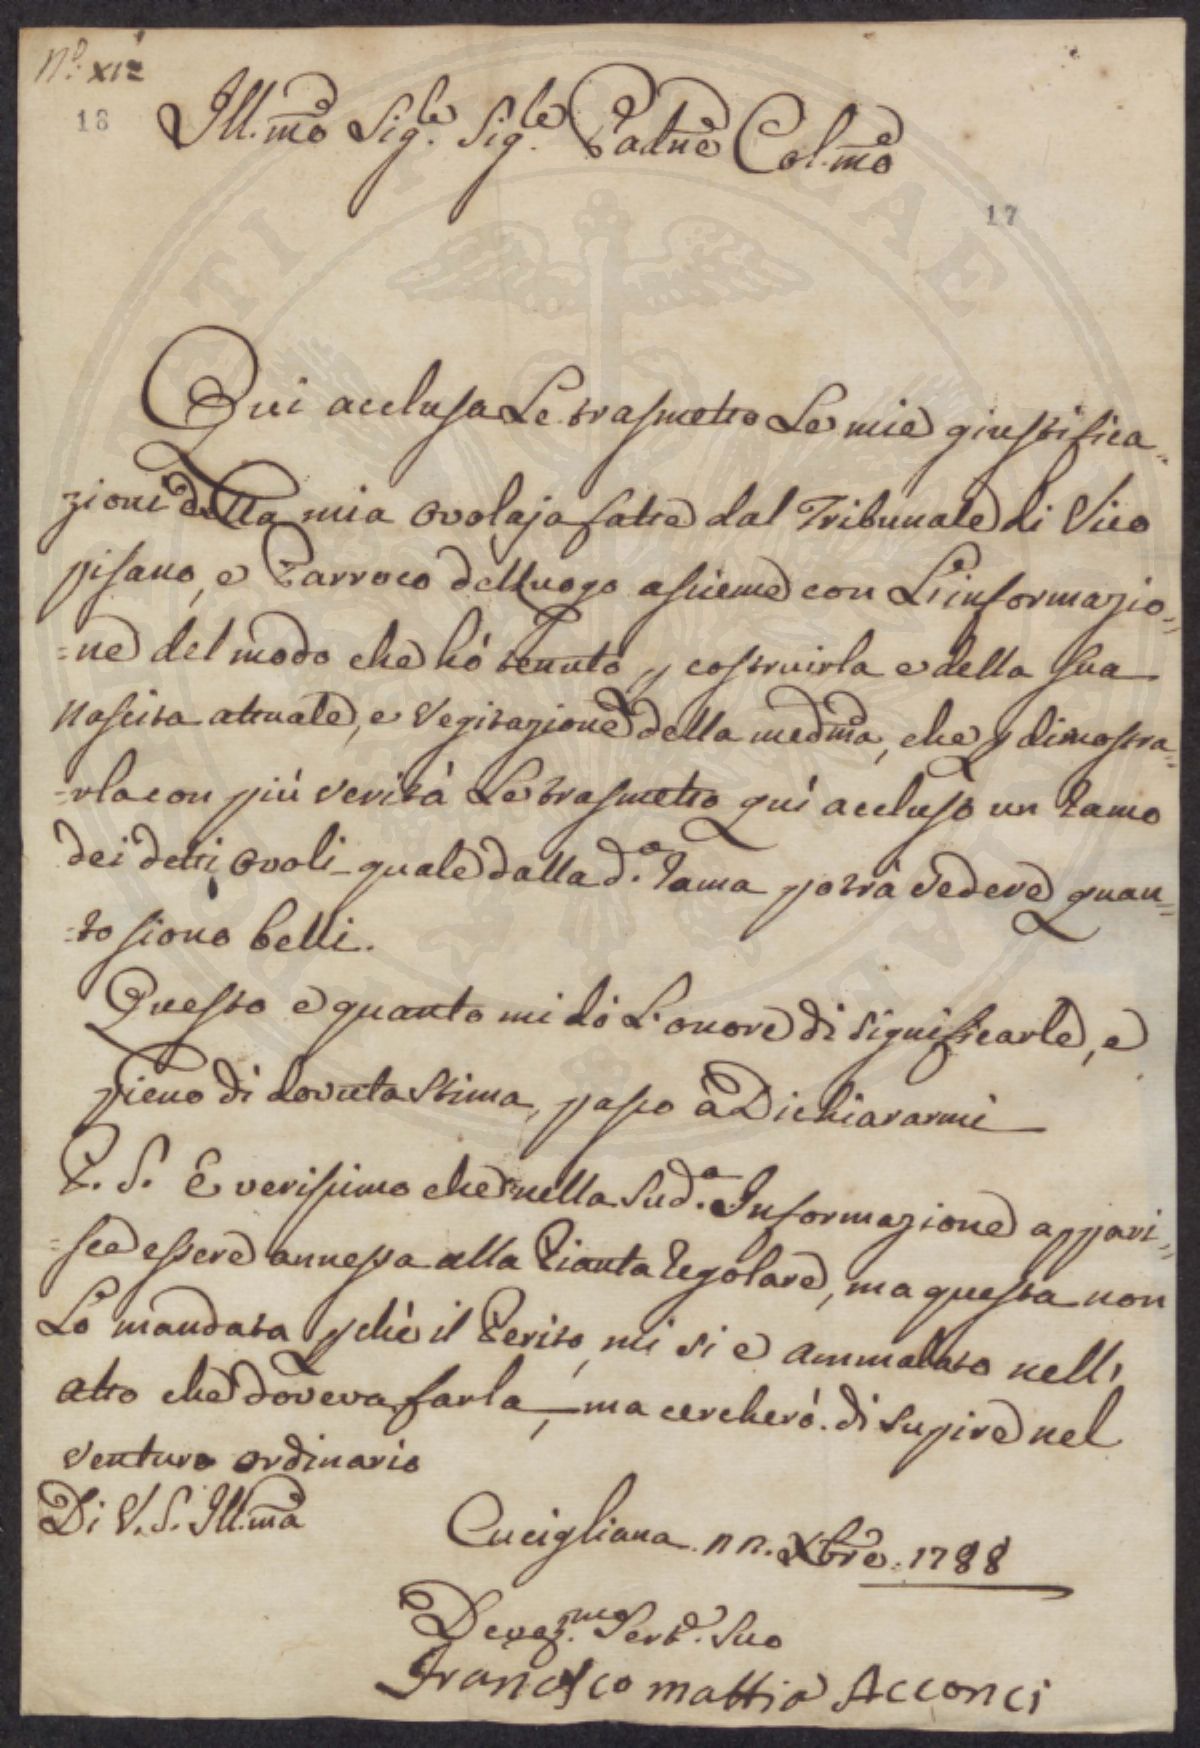 N.º XII
18
Ill.mo Sig.re Sig.re Padne Col.mo
17
Qui acclusa Le trasmetto Le mie giustifica=
zioni della mia Ovolaja fatte dal Tribunale di Vico
pisano, e Parroco del Luogo assieme con L'informazio=
=ne del modo che hò tenuto p costruirla e della sua
nascita attuale, e vegitazione della medma, che p dimostra=
=rla con più verità Le trasmetto quì accluso un Ramo
dei detti Ovoli quale dalla d.a Rama potrà vedere quan=
=to siono belli.
Questo e quanto mi dò L'onore di significarle, e
pieno di dovuta stima, passo à Dichiararmi
P. S. E verissimo che nella Sud.a Informazione appari=
=sce essere annessa alla Pianta Regolare, ma questa non
Lò mandata p chè il Perito, mi si e ammalato nell'
atto che doveva farla, ma cercherò di supire nel
venturo ordinario
Di V. S. Ill.ma
Cucigliana Xbre 1788
Serv.e Suo
Francesco mattio Acconci